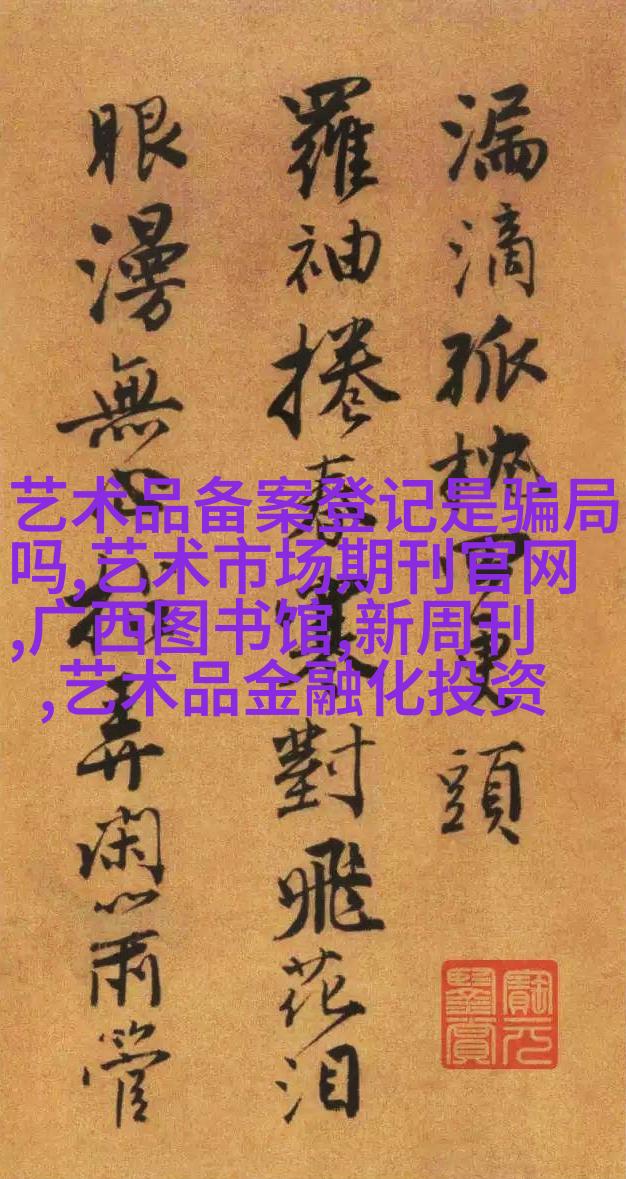 艺术品备案登记是骗局
吗,艺术市场期刊官网
,广西图书馆,新周刊
,艺术品金融化投资
漏滴孤更頭
羅袖捲春對飛花泪
眼漫無心弄闲管